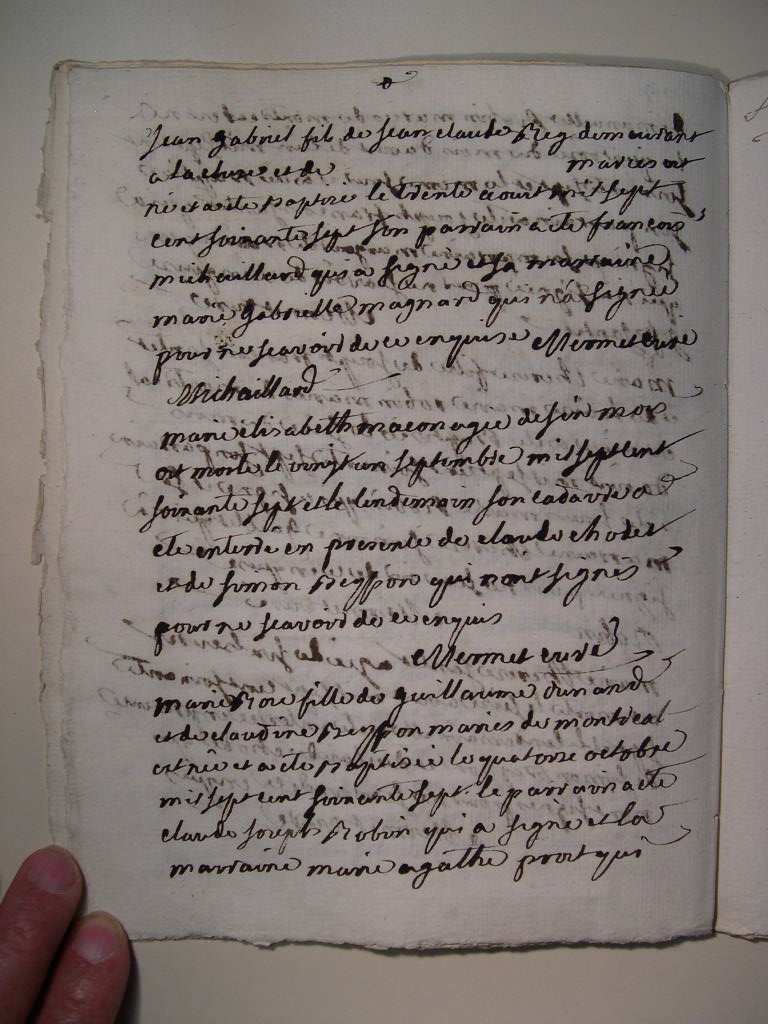 Jean gabriel fils de Jean claude Rey demeurant
a la cluse et de mariés est
né et a ete baptisé le trente aoust mil sept
cent soixante sept son parrain a ete françois
michaillard qui a signé et sa marraine
marie gabrielle magnard qui n'a signée
pour ne scavoir de ce enquise Mermet curé
Michaillard
marie elisabeth macon agee de six mois
est morte le vingt un septembre mil sept cent
soixante sept et le lendemain son cadavre a
ete enterré en presence de claude chodet
et de simon Reyppon qui n'ont signés
pour ne scavoir de ce enquis
Mermet curé
marie Rose fille de guillaume dunand
et de claudine Reyppon mariés de montreal
est née et a ete baptisée le quatorze octobre
mil sept cent soixante sept. le parrain a ete
claude joseph Robin qui a signé et la
marraine marie agathe prost qui